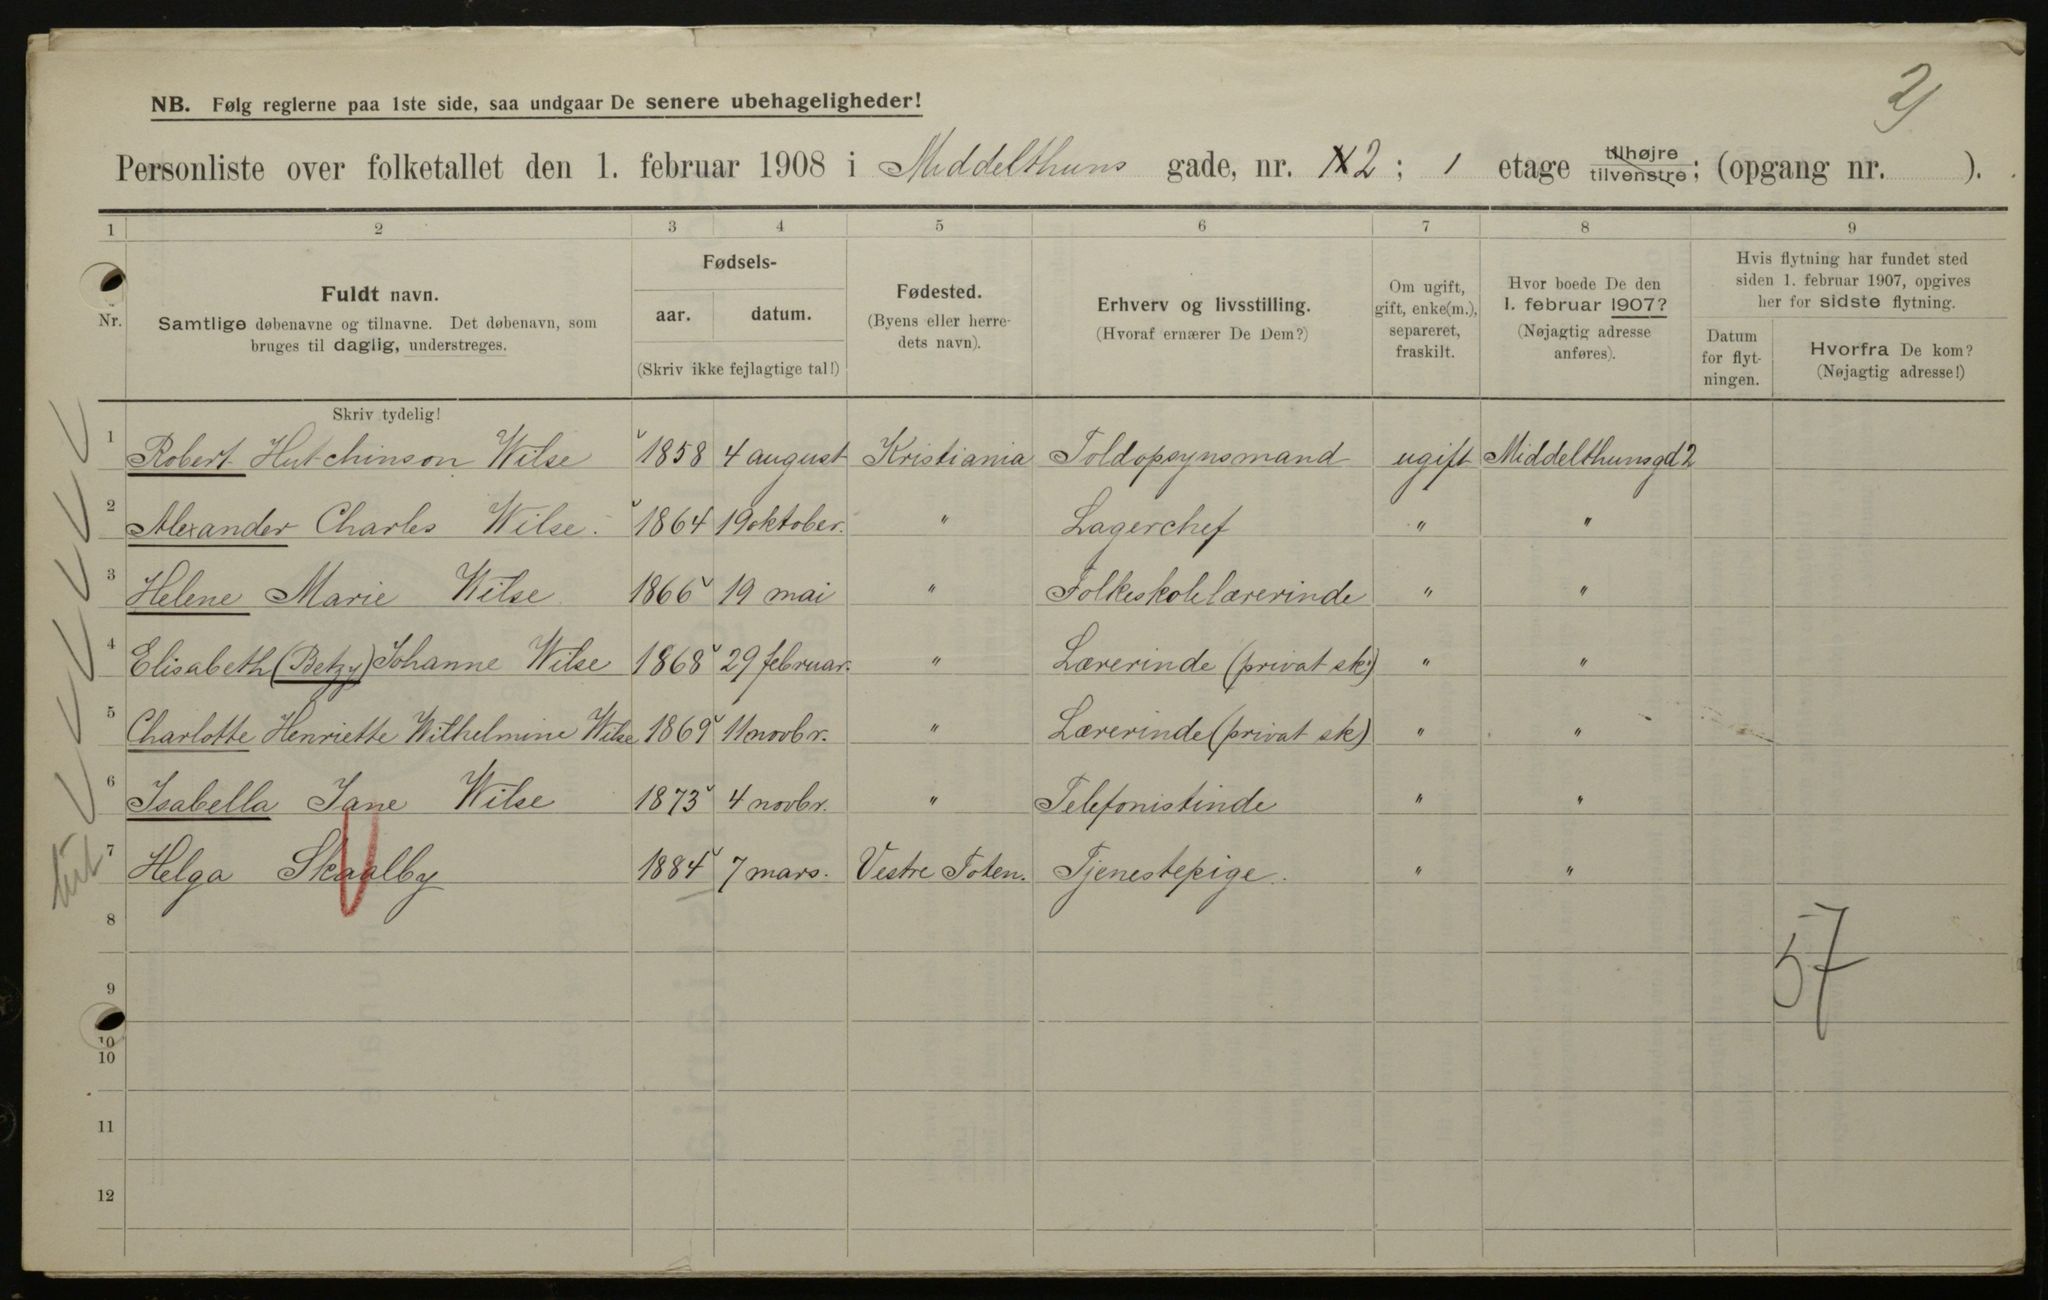 2)
NB. Følg reglerne paa 1ste side, saa undgaar De senere ubehageligheder!
Personliste over folketallet den 1. februar 1908 i Middelthuns gade, nr. 2; 1 etage tilhøjre tilvenstre; (opgang nr. ).
1 2 3 4 5 6 7 8 9
Nr.
Fuldt navn.
Samtlige døbenavne og tilnavne. Det døbenavn, som
bruges til daglig, understreges.
Fødsels-
aar. datum.
(Skriv ikke fejlagtige tal!)
Fødested.
(Byens eller herre-
dets navn).
Erhverv og livsstilling.
(Hvoraf ernærer De Dem?)
Om ugift,
gift, enke(m.),
separeret,
fraskilt.
Hvor boede De den
1. februar 1907?
(Nøjagtig adresse
anføres).
Hvis flytning har fundet sted
siden 1. februar 1907, opgives
her for sidste flytning.
Datum
for flyt-
ningen.
Hvorfra De kom?
(Nøjagtig adresse!)
Skriv tydelig!
1 Robert Hutchinson Wilse 1858 4 august Kristiania Toldopsynsmand ugift Middelthunsgd 2
2 Alexander Charles Wilse. 1864 19 oktober. " Lagerchef " "
3 Helene Marie Wilse 1866 19 mai " Folkeskolelærerinde " "
4 Elisabeth (Betzy) Johanne Wilse 1868 29 februar. " Lærerinde (privat sk.) " "
5 Charlotte Henriette Wilhelmine Wilse 1869 11 novbr. " Lærerinde (privat sk) " "
6 Isabella Jane Wilse 1873 4 novbr. " Telefonistinde " "
7 Helga Skaalby 1884 7 mars. Vestre Toten. Tjenestepige. " "
8
57
9
10
10
11
12